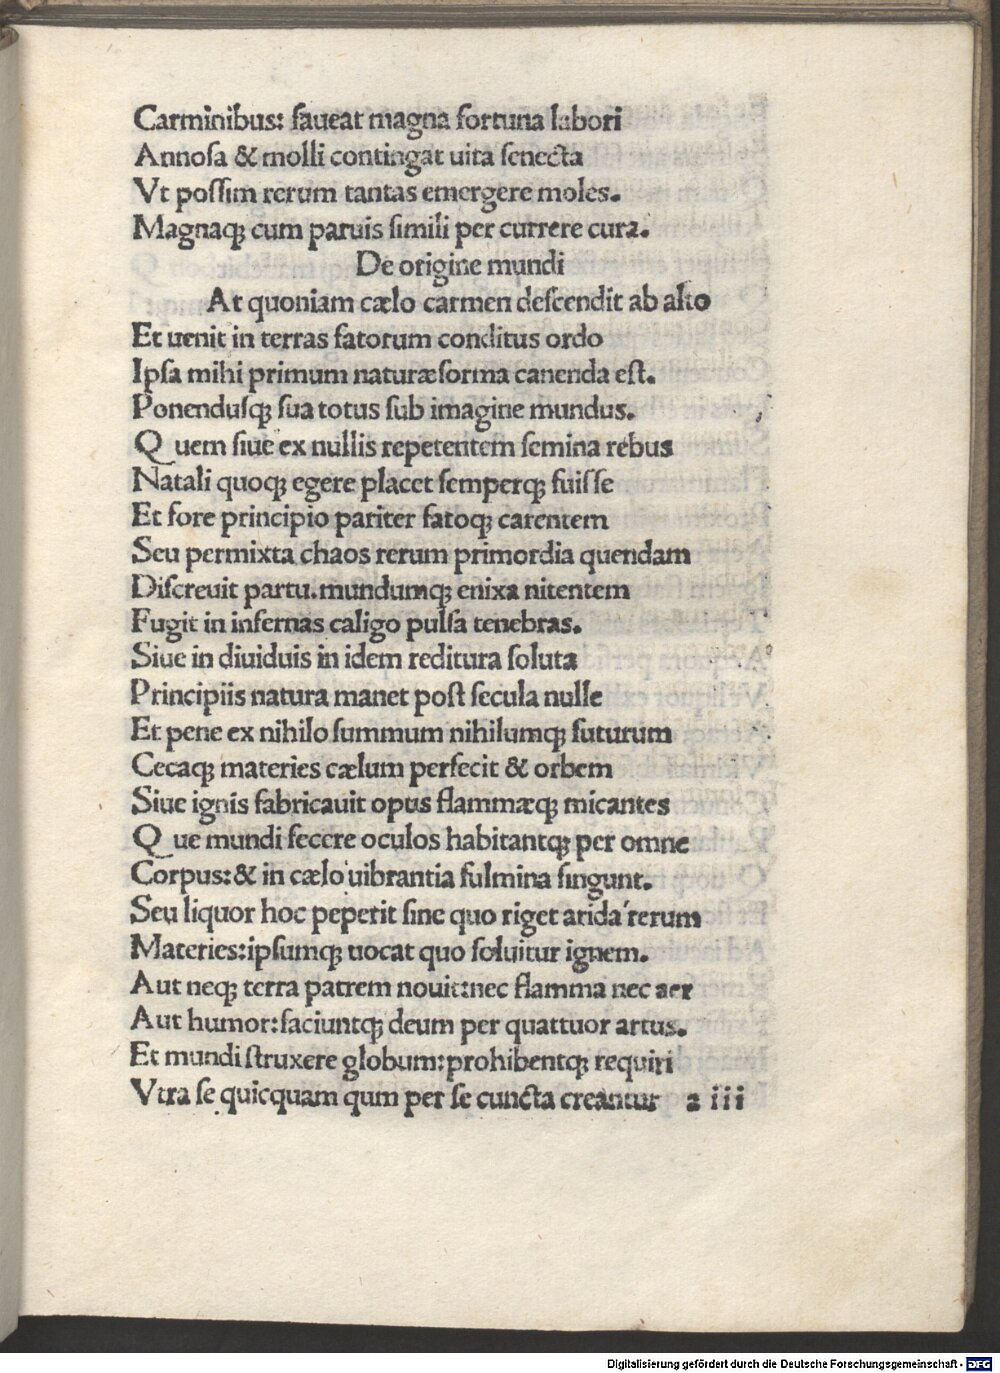 Carminibus: faueat magna fortuna labori
Annoſa & molli contingat uita ſenecta
Vt poſſim rerum tantas emergere moles.
Magnaqꝫ cum paruis ſimili per currere cura.
De origine mundi
At quoniam cælo carmen deſcendit ab alto
Et uenit in terras fatorum conditus ordo
Ipſa mihi primum naturæ forma canenda eſt.
Ponenduſqꝫ ſua totus ſub imagine mundus.
Quem ſiue ex nullis repetentem ſemina rebus
Natali quoqꝫ egere placet ſemperqꝫ fuiſſe
Et fore principio pariter fatoqꝫ carentem
Seu permixta chaos rerum primordia quendam
Diſcreuit partu.mundumqꝫ enixa nitentem
Fugit in infernas caligo pulſa tenebras.
Siue in diuiduis in idem reditura ſoluta
Principiis natura manet poſt ſecula nulle
Et pene ex nihilo ſummum nihilumqꝫ futurum
Cecaqꝫ materies cælum perfecit & orbem
Siue ignis fabricauit opus flammæqꝫ micantes
Que mundi fecere oculos habitantqꝫ per omne
Corpus:& in cælo uibrantia fulmina fingunt.
Seu liquor hoc peperit ſine quo riget arida rerum
Materies:ipſumqꝫ uocat quo ſoluitur ignem.
Aut neqꝫ terra patrem nouit:nec flamma nec aer
Aut humor:faciuntqꝫ deum per quattuor artus.
Et mundi ſtruxere globum:prohibentqꝫ requiri
Vtra ſe quicquam qum per ſe cuncta creantur a iii
Digitalisierung gefördert durch die Deutsche Forschungsgemeinschaft - DFG